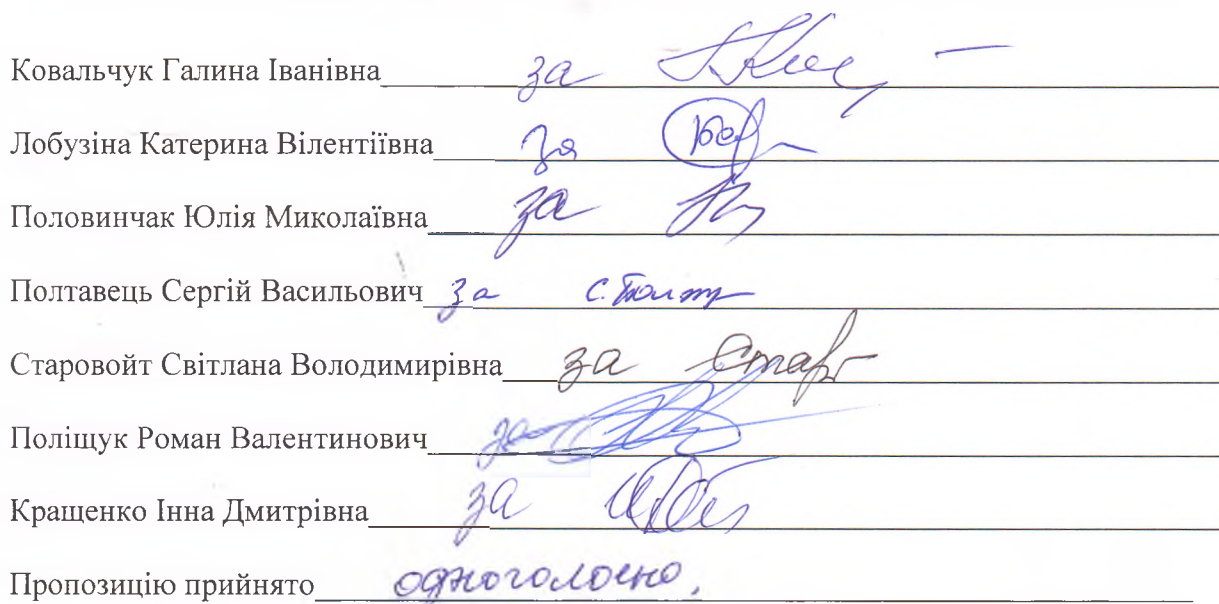 Ковальчук Галина Іванівна за
Лобузіна Катерина Вілентіївна за
Половинчак Юлія Миколаївна за
Полтавець Сергій Васильович за
Старовойт Світлана Володимирівна за
Поліщук Роман Валентинович за
Кращенко Інна Дмитрівна за
Пропозицію прийнято одноголосно.